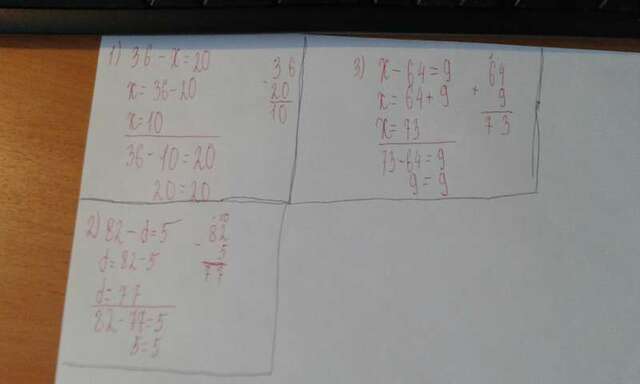 1) 36 - x = 20
x = 36-20
x = 10
36 - 10 = 20
20 = 20
- 36
20
10
2) 82 - d = 5
d = 82-5
d = 77
82 - 77 = 5
5 = 5
- 82
5
77
3) x - 64 = 9
x = 64 + 9
x = 73
73 - 64 = 9
9 = 9
+ 64
9
73